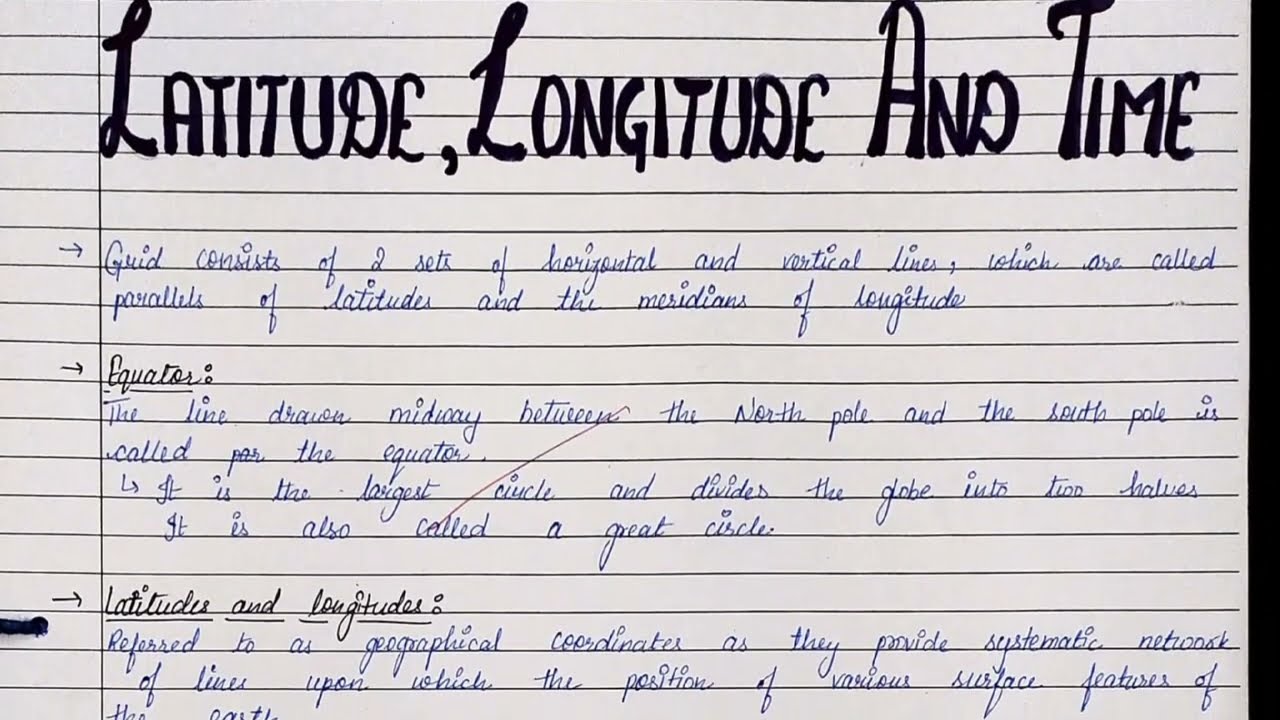 LATITUDE, LONGITUDE AND TIME
→ Grid consists of 2 sets of horizontal and vertical lines, which are called
parallels of latitudes and the meridians of longitude
→ Equator:
The line drawn midway between the North pole and the south pole is
called par the equator.
↳ It is the largest circle and divides the globe into two halves
It is also called a great circle.
→ Latitudes and longitudes:
Referred to as geographical coordinates as they provide systematic network
of lines upon which the position of various surface features of
the earth